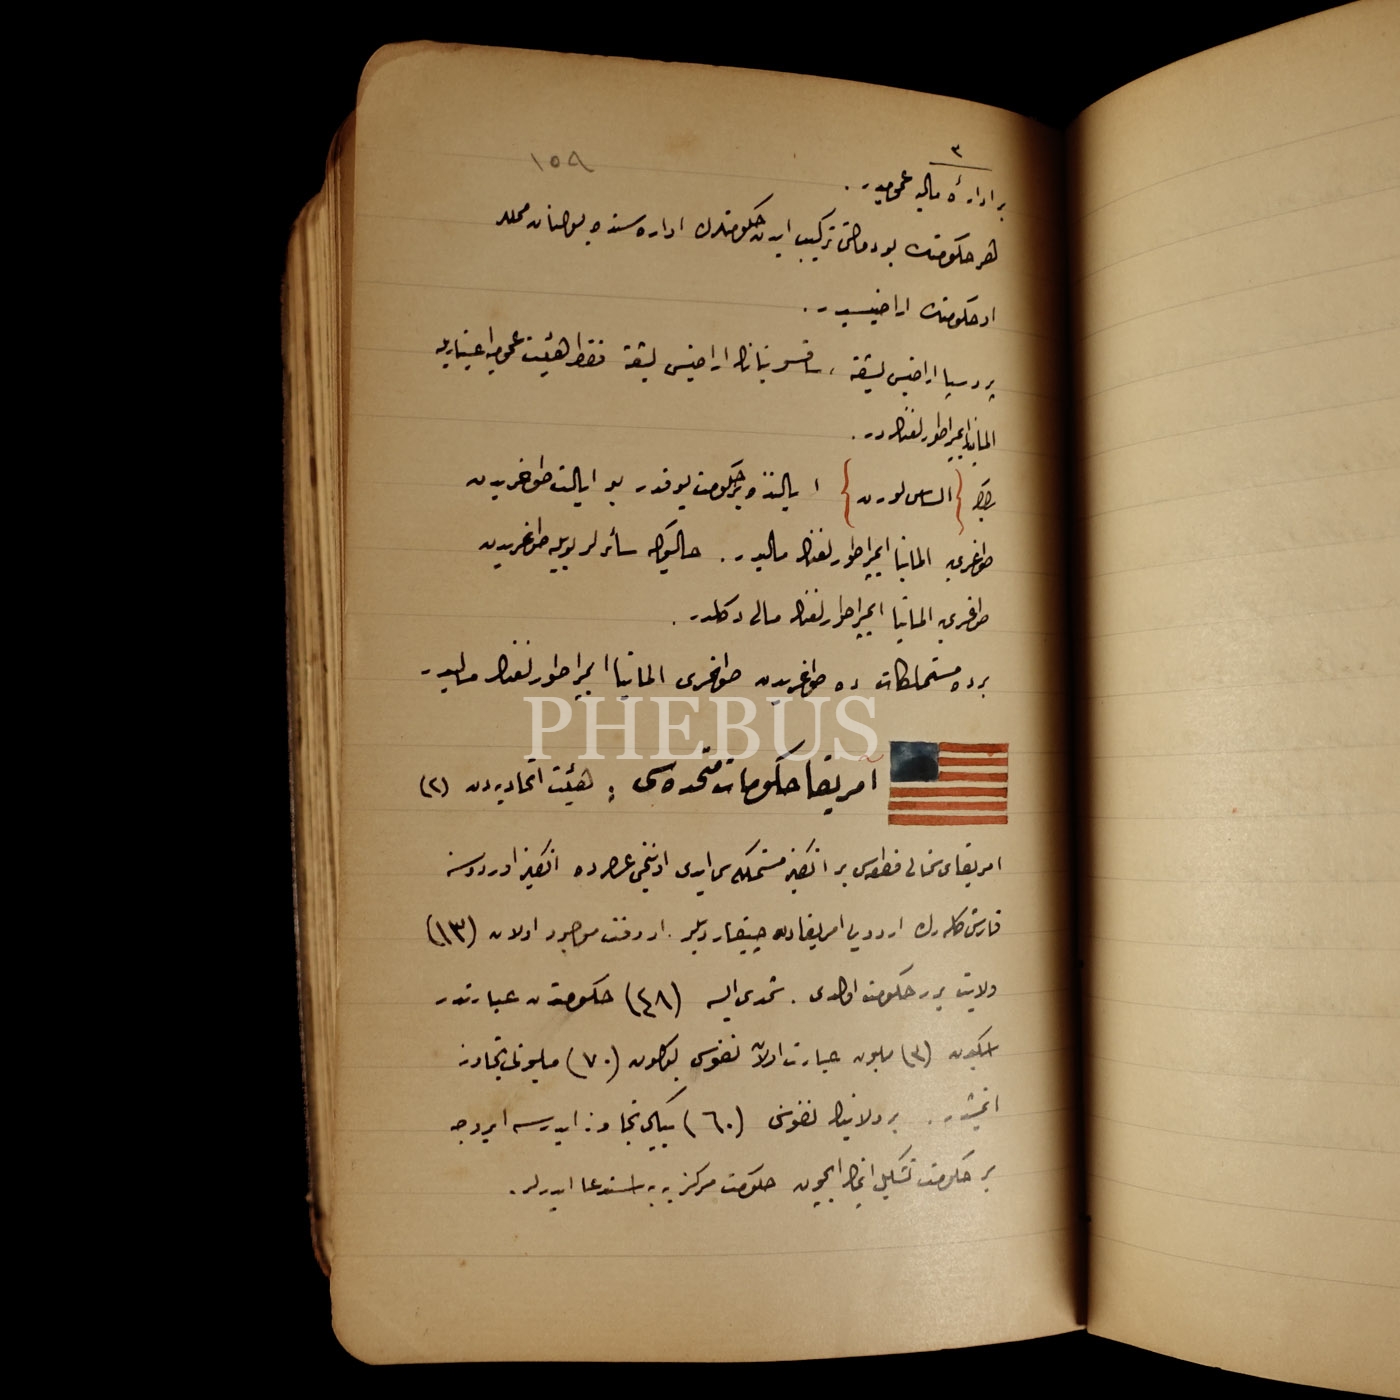 ١٥٩
٣
بر اداره‌ٔ ماليه عموميدر .
هر حكومتك بوردماقتى تركيب ايدن حكومتلرك اداره‌سنده بولنان محللر
او حكومتك اراضيسيدر .
پروسيا اراضيسى ليشقه ، ساقسونيانك اراضيسى ليشقه فقط هيئت عموميه اعتباريله
المانيا ايمپراطورلغنكدر .
يالكز { الساس لورن } ايالتنده بر حكومت يوقدر بو ايالت طوغريدن
طوغرى المانيا ايمپراطورلغنك ماليدر . حالبوكه سائرلر بويله طوغريدن
طوغرى المانيا ايمپراطورلغنك مالى دكلدر .
برده مستملكات ده طوغريدن طوغرى المانيا ايمپراطورلغنك ماليدر
PHEBUS
آمريقا حكومات متحده‌سى : هيئت اتحاديه‌دن (٢)
امريقاى شمالى قطعه‌سى بر انكليز مستملكه‌سى ايدى اون عصرده انكليز اوردوسنه
قارشى كله‌رك اردويى امريقادن چيقارديلر . او وقت موجود اولان (١٣)
ولايت برر حكومت اولدى . شمدى ايسه (٤٨) حكومتدن عبارتدر
(٣) مليون عبارت اولان نفوسى بوكون (٧٠) مليونى تجاوز
ايتمشدر . بر ولايتك نفوسى (٦٠) بيكى تجاوز ايدرسه ايروجه
بر حكومت تشكيل ايتمك ايچون حكومت مركزيه‌يه استدعا ايدرلر .